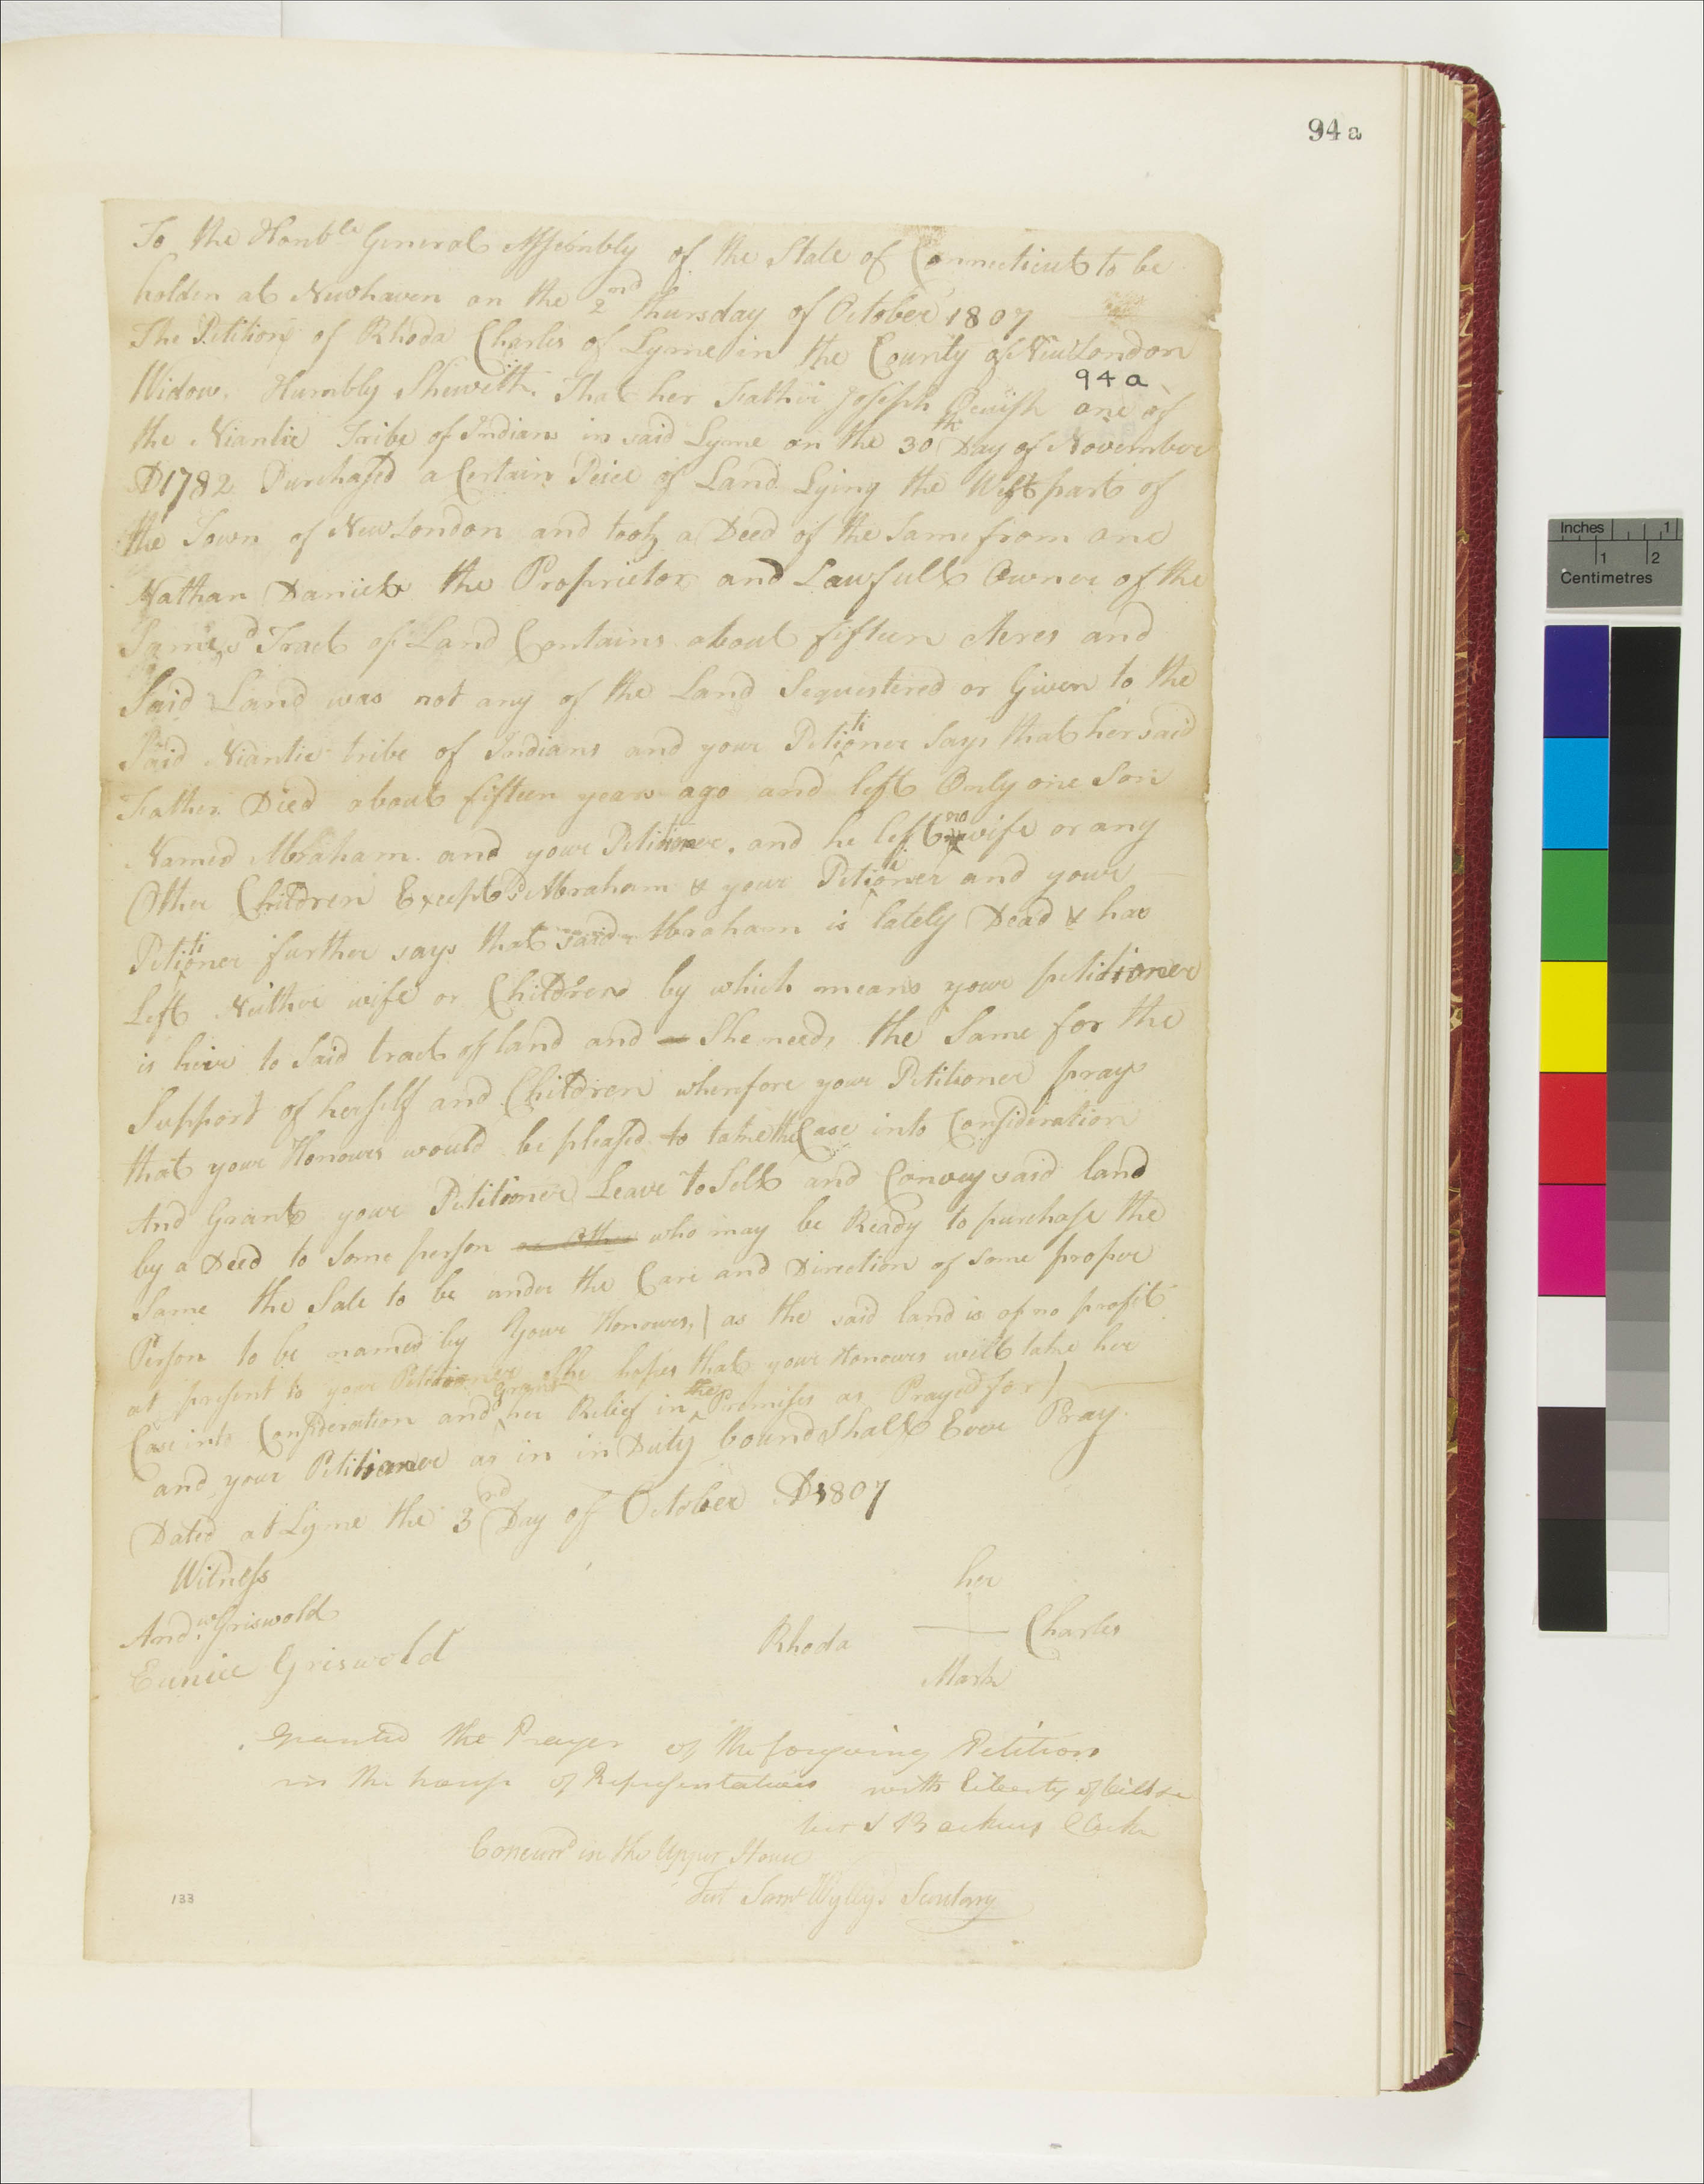 94a
To the Honble General Assembly of the State of Connecticut to be
holden at Newhaven on the 2nd thursday of October 1807
The Petition of Rhoda Charles of Lyme in the County of New London
94a
Widow. Humbly Sheweth. That her Father Joseph one of
the Niantic Tribe of Indians in said Lyme on the 30th Day of November
AD 1782 Purchased a Certain Peice of Land Lying the West part of
the Town of New London and took a Deed of the Same from one
Nathan Daniels the Proprietor and Lawfull Owner of the
Same, sd Tract of Land Contains about fifteen Acres and
Said Land was not any of the Land Sequestered or Given to the
Said Niantic tribe of Indians and your Petitioner Says that her said
Father Died about fifteen years ago and left Only one Son
Named Abraham. and your Petitioner. and he left no wife or any
Other Children Except sd Abraham & your Petitioner and your
Petitioner further says that said Abraham is lately Dead & has
Left Neither wife or Children by which means your petitioner
is heir to Said tract of land and She needs the Same for the
Support of herself and Children wherefore your Petitioner prays
that your Honours would be pleased to take the Case into Consideration
And Grant your Petitioner Leave to Sell and Convey said land
by a Deed to Some person or Other who may be Ready to purchase the
Same the Sale to be under the Care and Direction of some proper
Person to be named by Your Honours, ) as the said land is of no profit
at present to your Petitioner She hopes that your Honours will take her
Case into Consideration and Grant her Relief in the Premises as Prayed for )
and your Petitioner as in in Duty bound Shall Ever Pray.
Dated at Lyme the 3rd Day of October AD 1807
Witness
her
Andw. Griswold
Rhoda Charles
Eunice Griswold
Mark
Granted the Prayer of the foregoing Petition
in the house of Representatives with liberty of bill &c
test Backus Clerk
Concurrd in the Upper House
Test Saml Wyllys Secretary
133
Inches 1
1 2
Centimetres